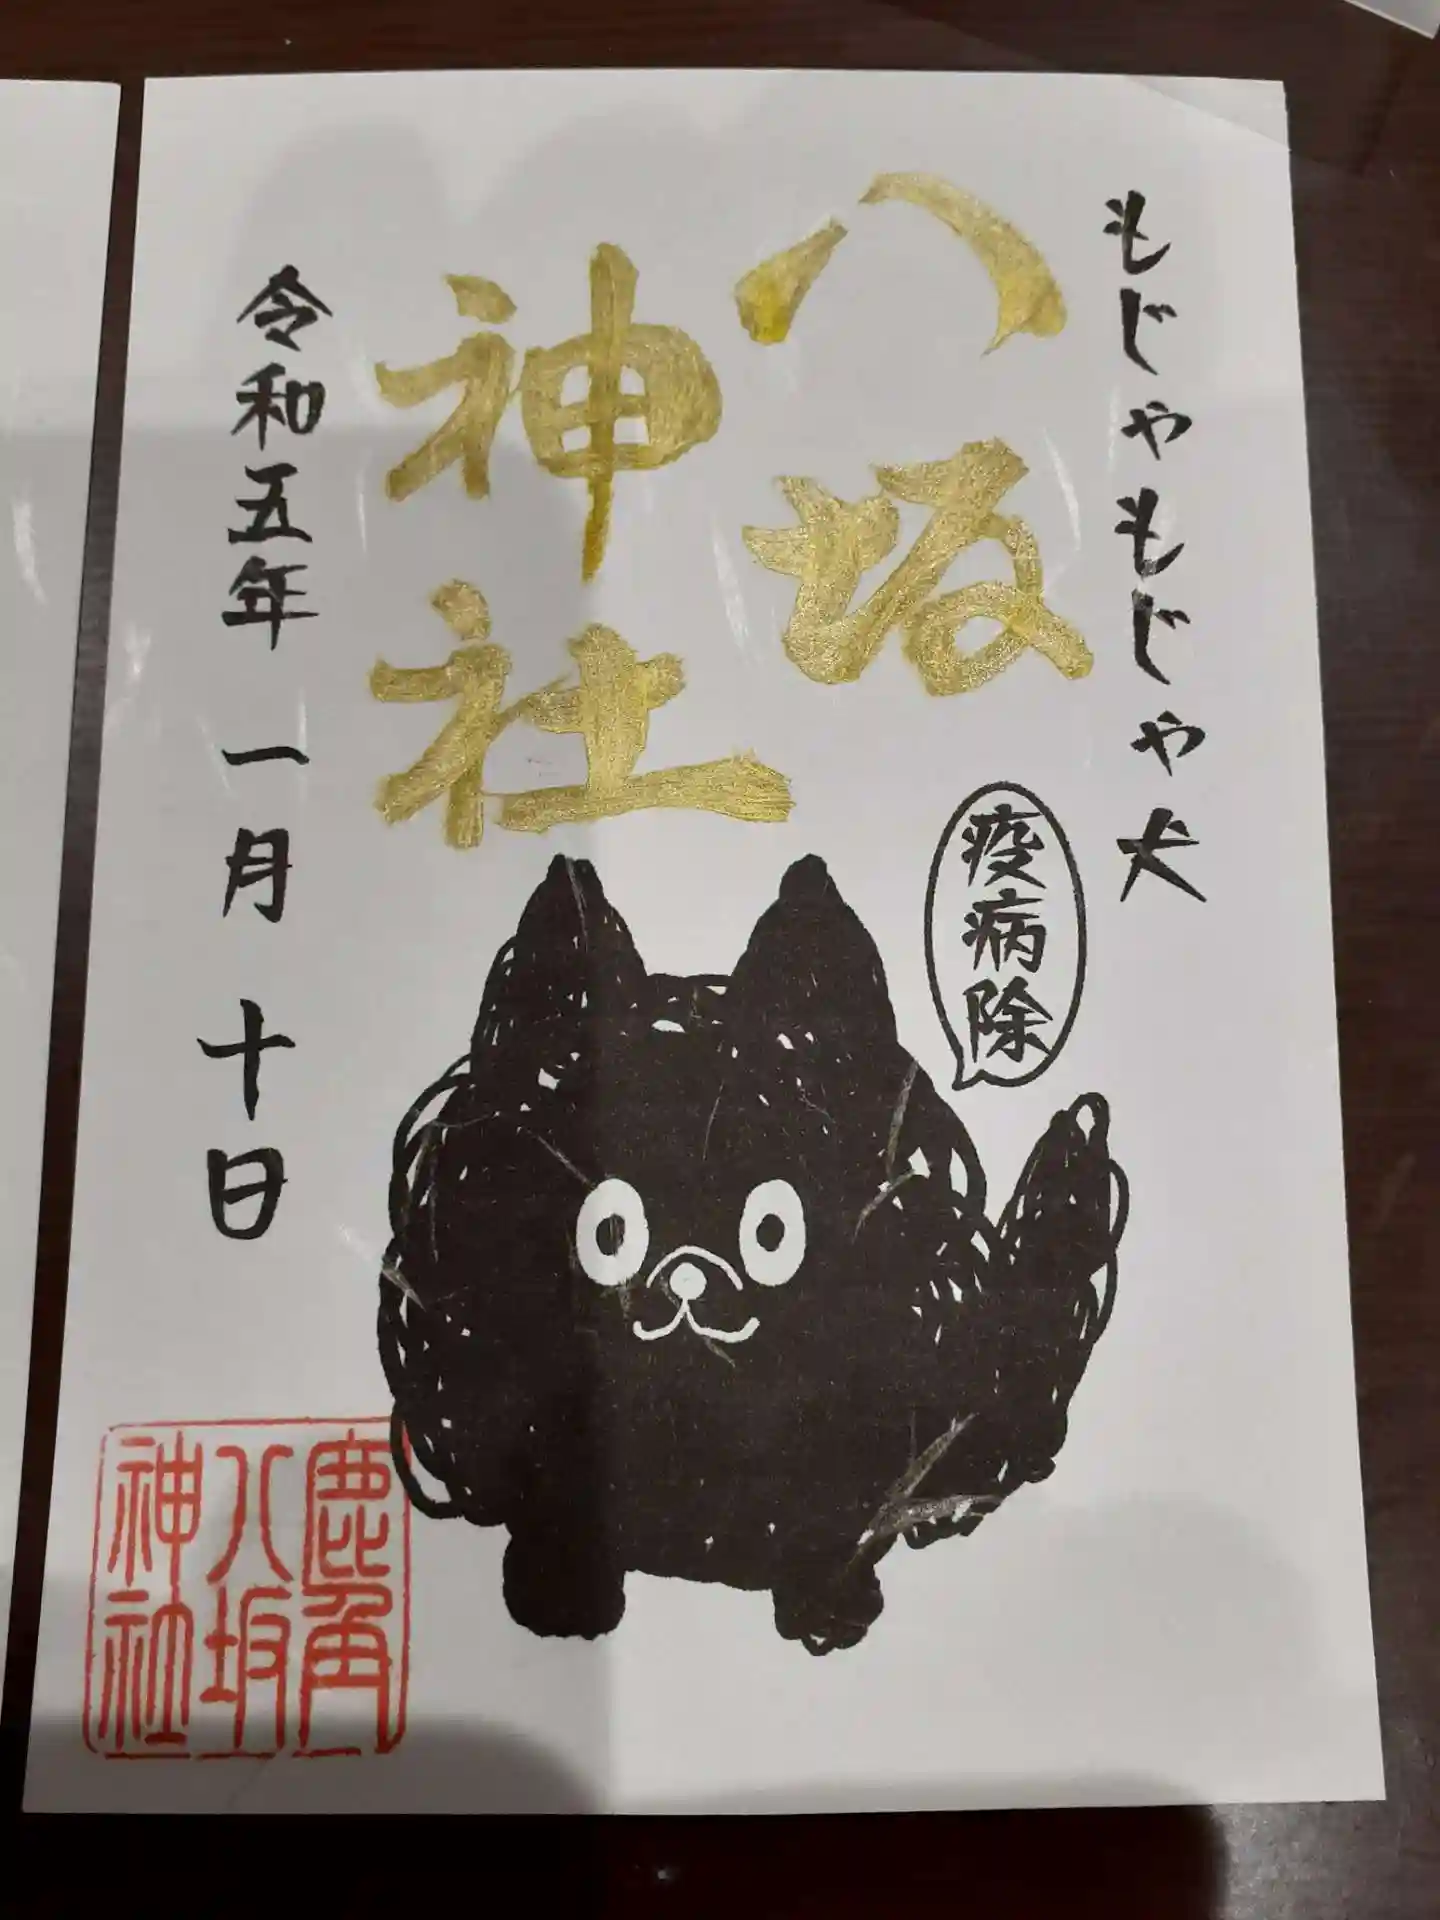 もじゃもじゃ犬
疫病除
八坂
神社
令和五年 一月 十日
鹿角
八坂
神社